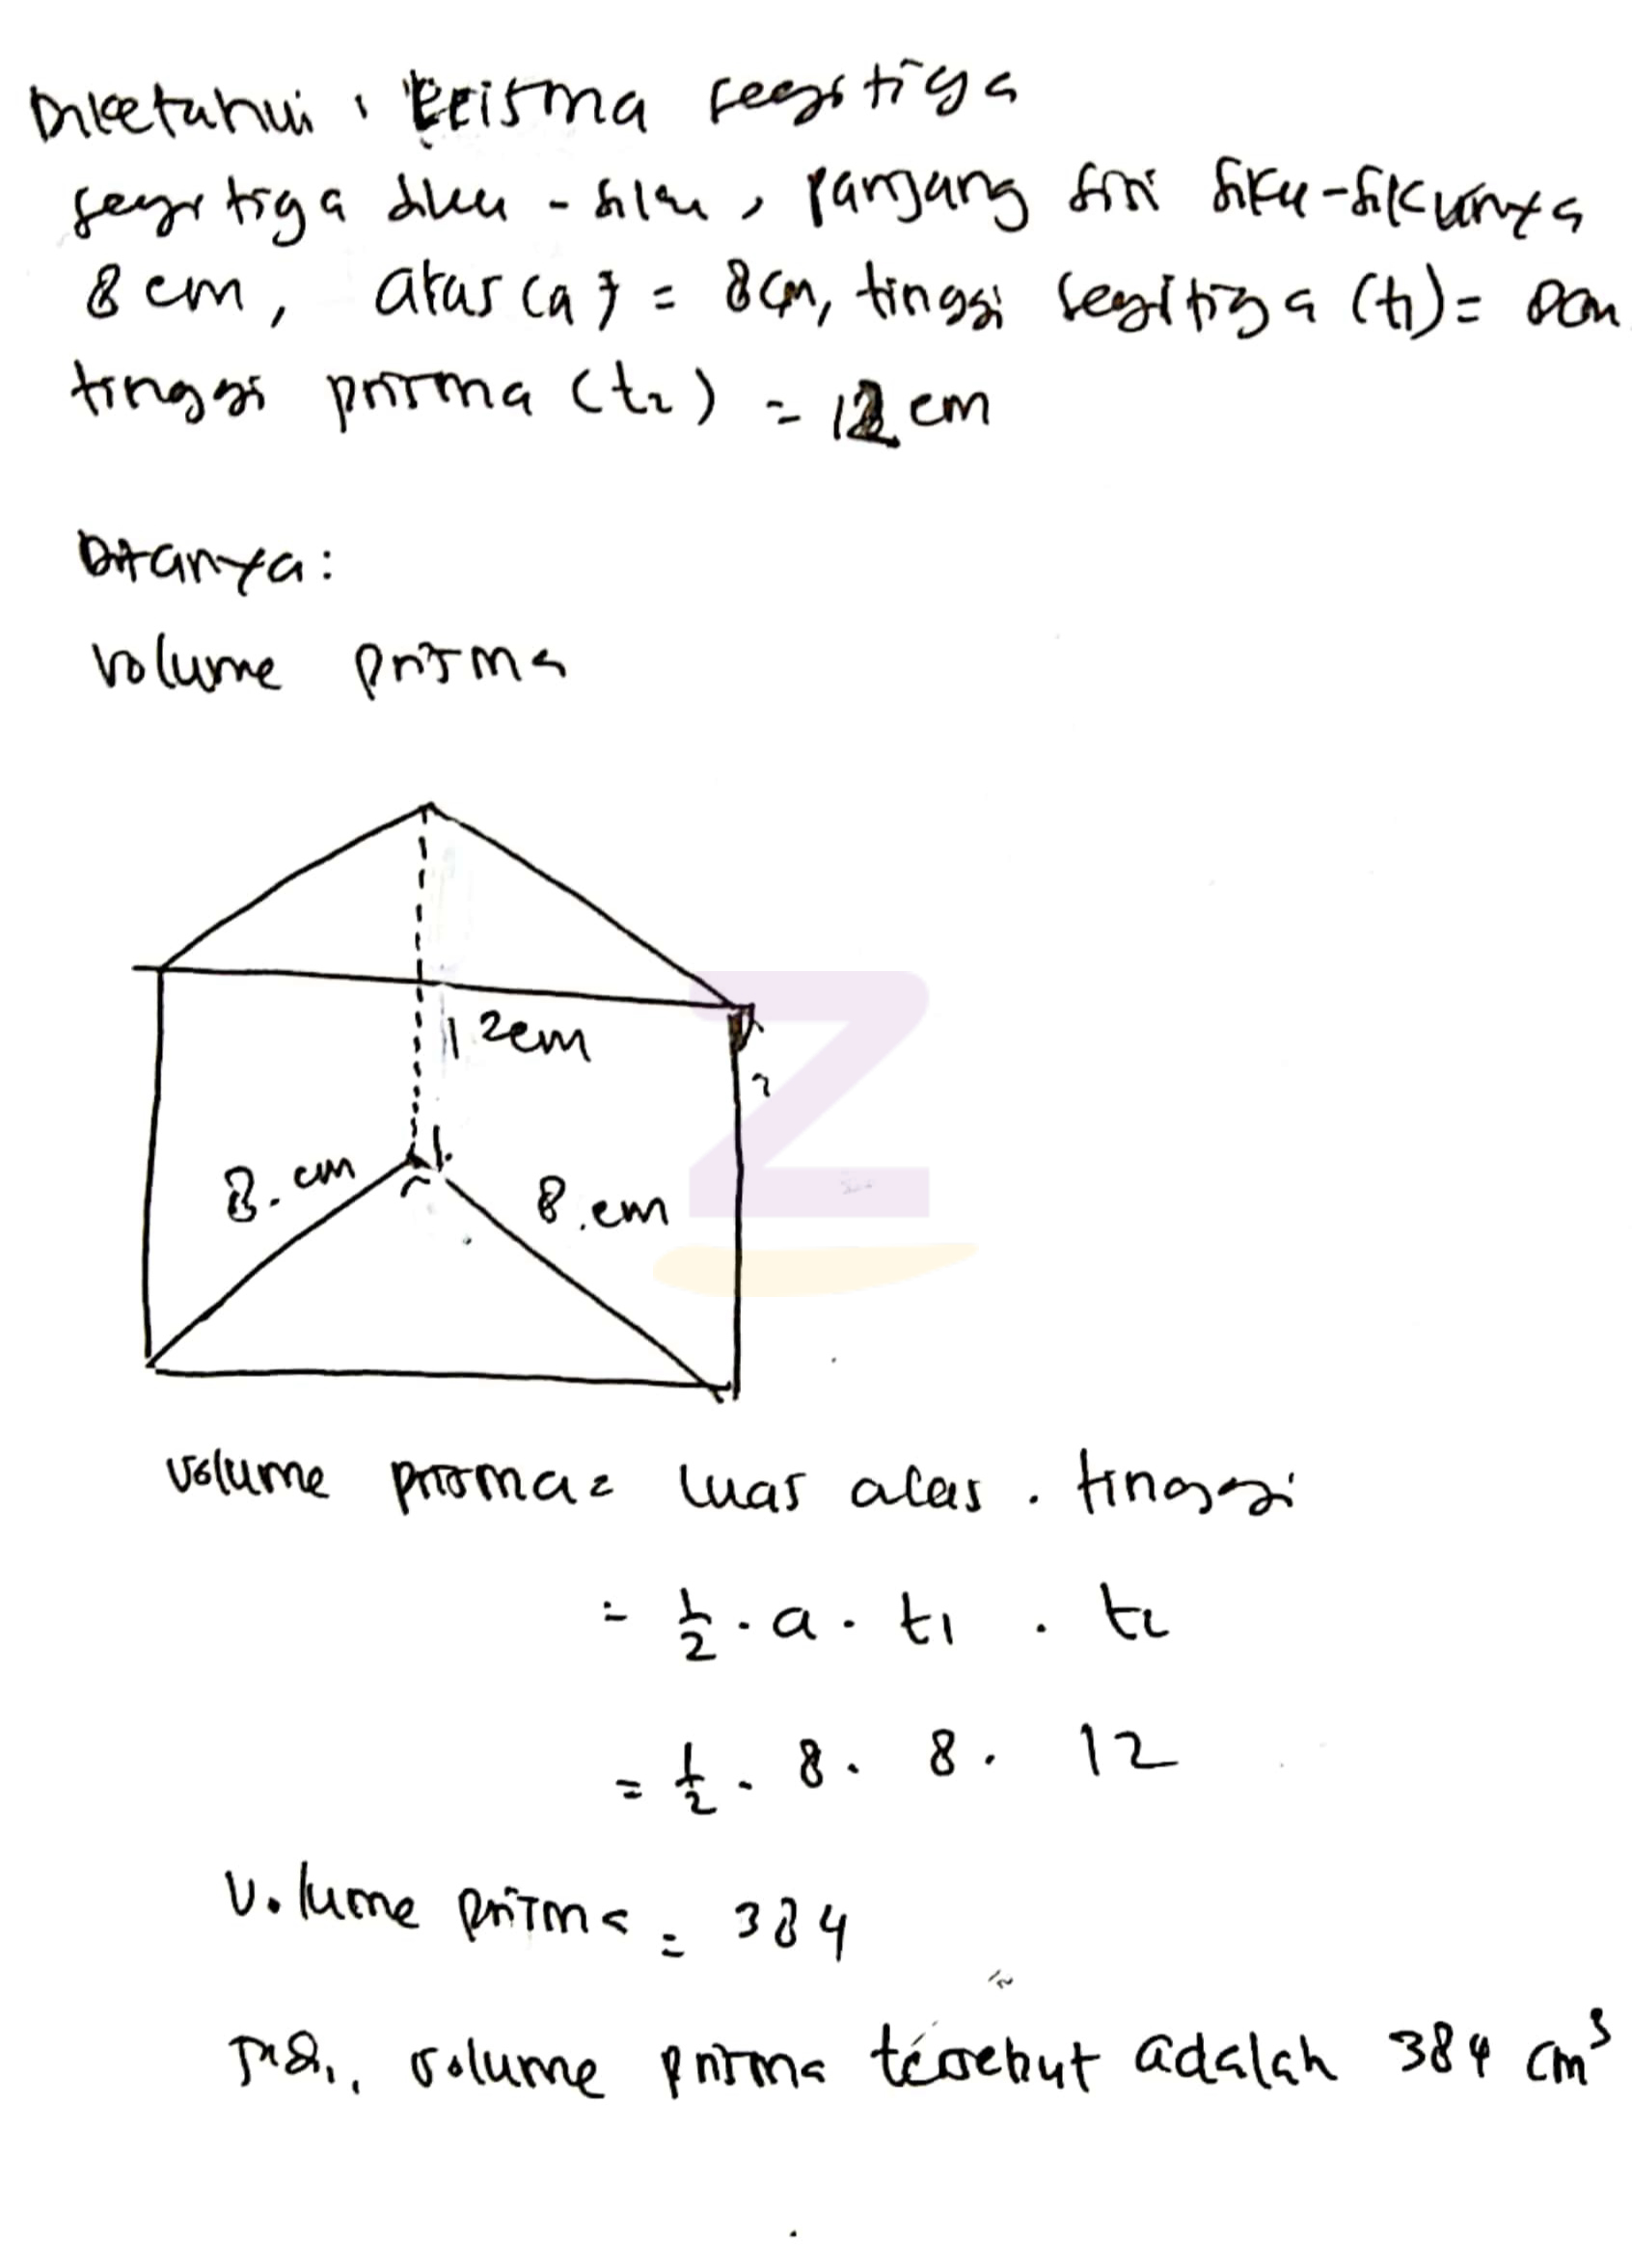 Diketahui : Prisma segitiga
segitiga siku - siku, panjang sisi siku-sikunya
8 cm, alas (a) = 8 cm, tinggi segitiga (t1) = 8 cm
tinggi prisma (t2) = 12 cm
Ditanya:
Volume prisma
12 cm
8. cm
8. cm
volume prisma = luas alas . tinggi
= 1/2 . a . t1 . t2
= 1/2 . 8 . 8 . 12
Volume prisma = 384
Jadi, volume prisma tersebut adalah 384 cm³
Z